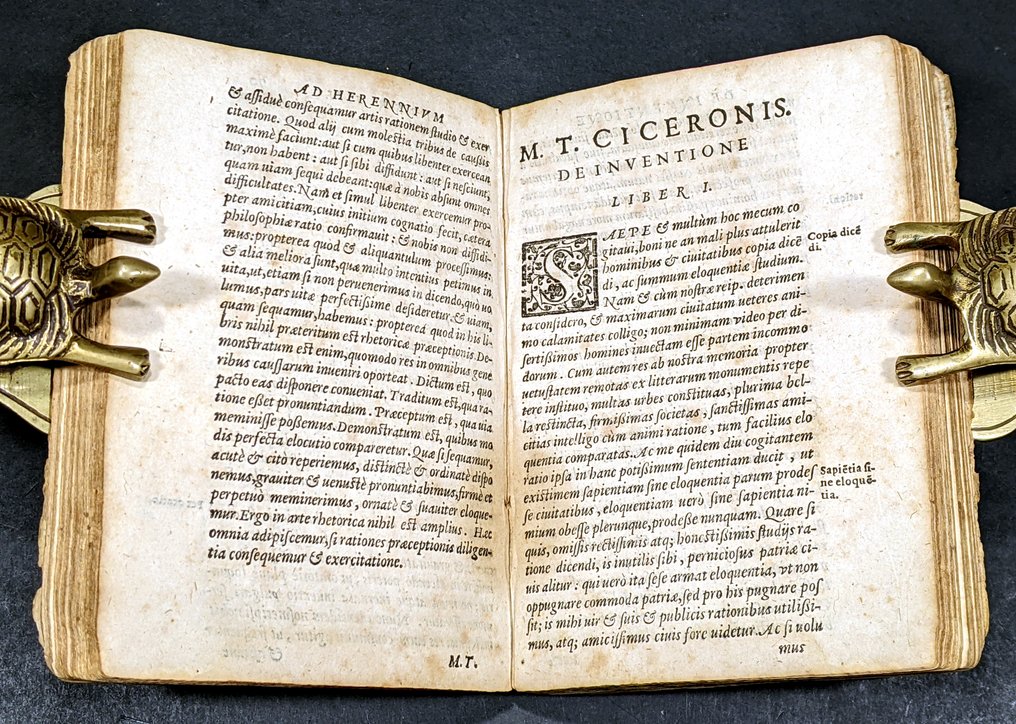 AD HERENNIVM
& assiduè consequamur artis rationem studio & exer
citatione. Quod alij cum molestia tribus de caussis
maximè faciunt: aut si cum quibus libenter exercean
tur, non habent: aut si sibi diffidunt: aut si nesciunt,
quam uiam sequi debeant: quæ à nobis absunt omnes
difficultates. Nam et simul libenter exercemur pro-
pter amicitiam, cuius initium cognatio fecit, cætera
philosophiæ ratio confirmauit: & nobis non diffidi-
mus: propterea quod & aliquantulum processimus,
& alia meliora sunt, quæ multo intentius petimus in
uita, ut, etiam si non peruenerimus in dicendo, quò uo
lumus, pars uitæ perfectissime desideretur: & uiam,
quam sequamur, habemus: propterea quod in his li-
bris nihil præteritum est rhetoricæ præceptionis. De-
monstratum est enim, quomodo res in omnibus gene
ribus caussarum inueniri oporteat. Dictum est, quo
pacto eas disponere conueniat. Traditum est, qua ra-
tione esset pronuntiandum. Præceptum est, qua uia
meminisse possemus. Demonstratum est, quibus mo
dis perfecta elocutio compareretur. Quæ si sequamur,
acutè & citò reperiemus, distinctè & ordinatè dispo
nemus, grauiter & uenustè pronuntiabimus, firmè et
perpetuò meminerimus, ornatè & suauiter eloque-
mur. Ergo in arte rhetorica nihil est amplius. Hæc
omnia adipiscemur, si rationes præceptionis diligen-
tia consequemur & exercitatione.
M.T.
M. T. CICERONIS.
DE INVENTIONE
LIBER I.
SAEPE & multùm hoc mecum co
gitaui, boni ne an mali plus attulerit
hominibus & ciuitatibus copia dicē
di, ac summum eloquentiæ studium.
Nam & cùm nostræ reip. detrimen
ta considero, & maximarum ciuitatum ueteres ani-
mo calamitates colligo; non minimam video per di-
sertissimos homines inuectam esse partem incommo
dorum. Cum autem res ab nostra memoria propter
uetustatem remotas ex litterarum monumentis repe
tere instituo, multas urbes constitutas, plurima bel-
la restincta, firmissimas societas, sanctissimas ami-
citias intelligo cùm animi ratione, tum facilius elo
quentia comparatas. Ac me quidem diu cogitantem
ratio ipsa in hanc potissimum sententiam ducit, ut
existimem sapientiam sine eloquentia parum prodes
se ciuitatibus, eloquentiam uerò sine sapientia ni-
mium obesse plerunque, prodesse nunquam. Quare si
quis, omissis rectissimis atq; honestissimis studijs ra-
tione dicendi, is inutilis sibi, perniciosus patriæ ci-
uis alitur: qui uerò ita sese armat eloquentia, vt non
oppugnare commoda patriæ, sed pro his pugnare pos
sit; is mihi uir & suis & publicis rationibus utilissi-
mus, atq; amicissimus ciuis fore uidetur. Ac si uolu
mus
Copia dicē
di.
Sapiētia si-
ne eloquē-
tia.